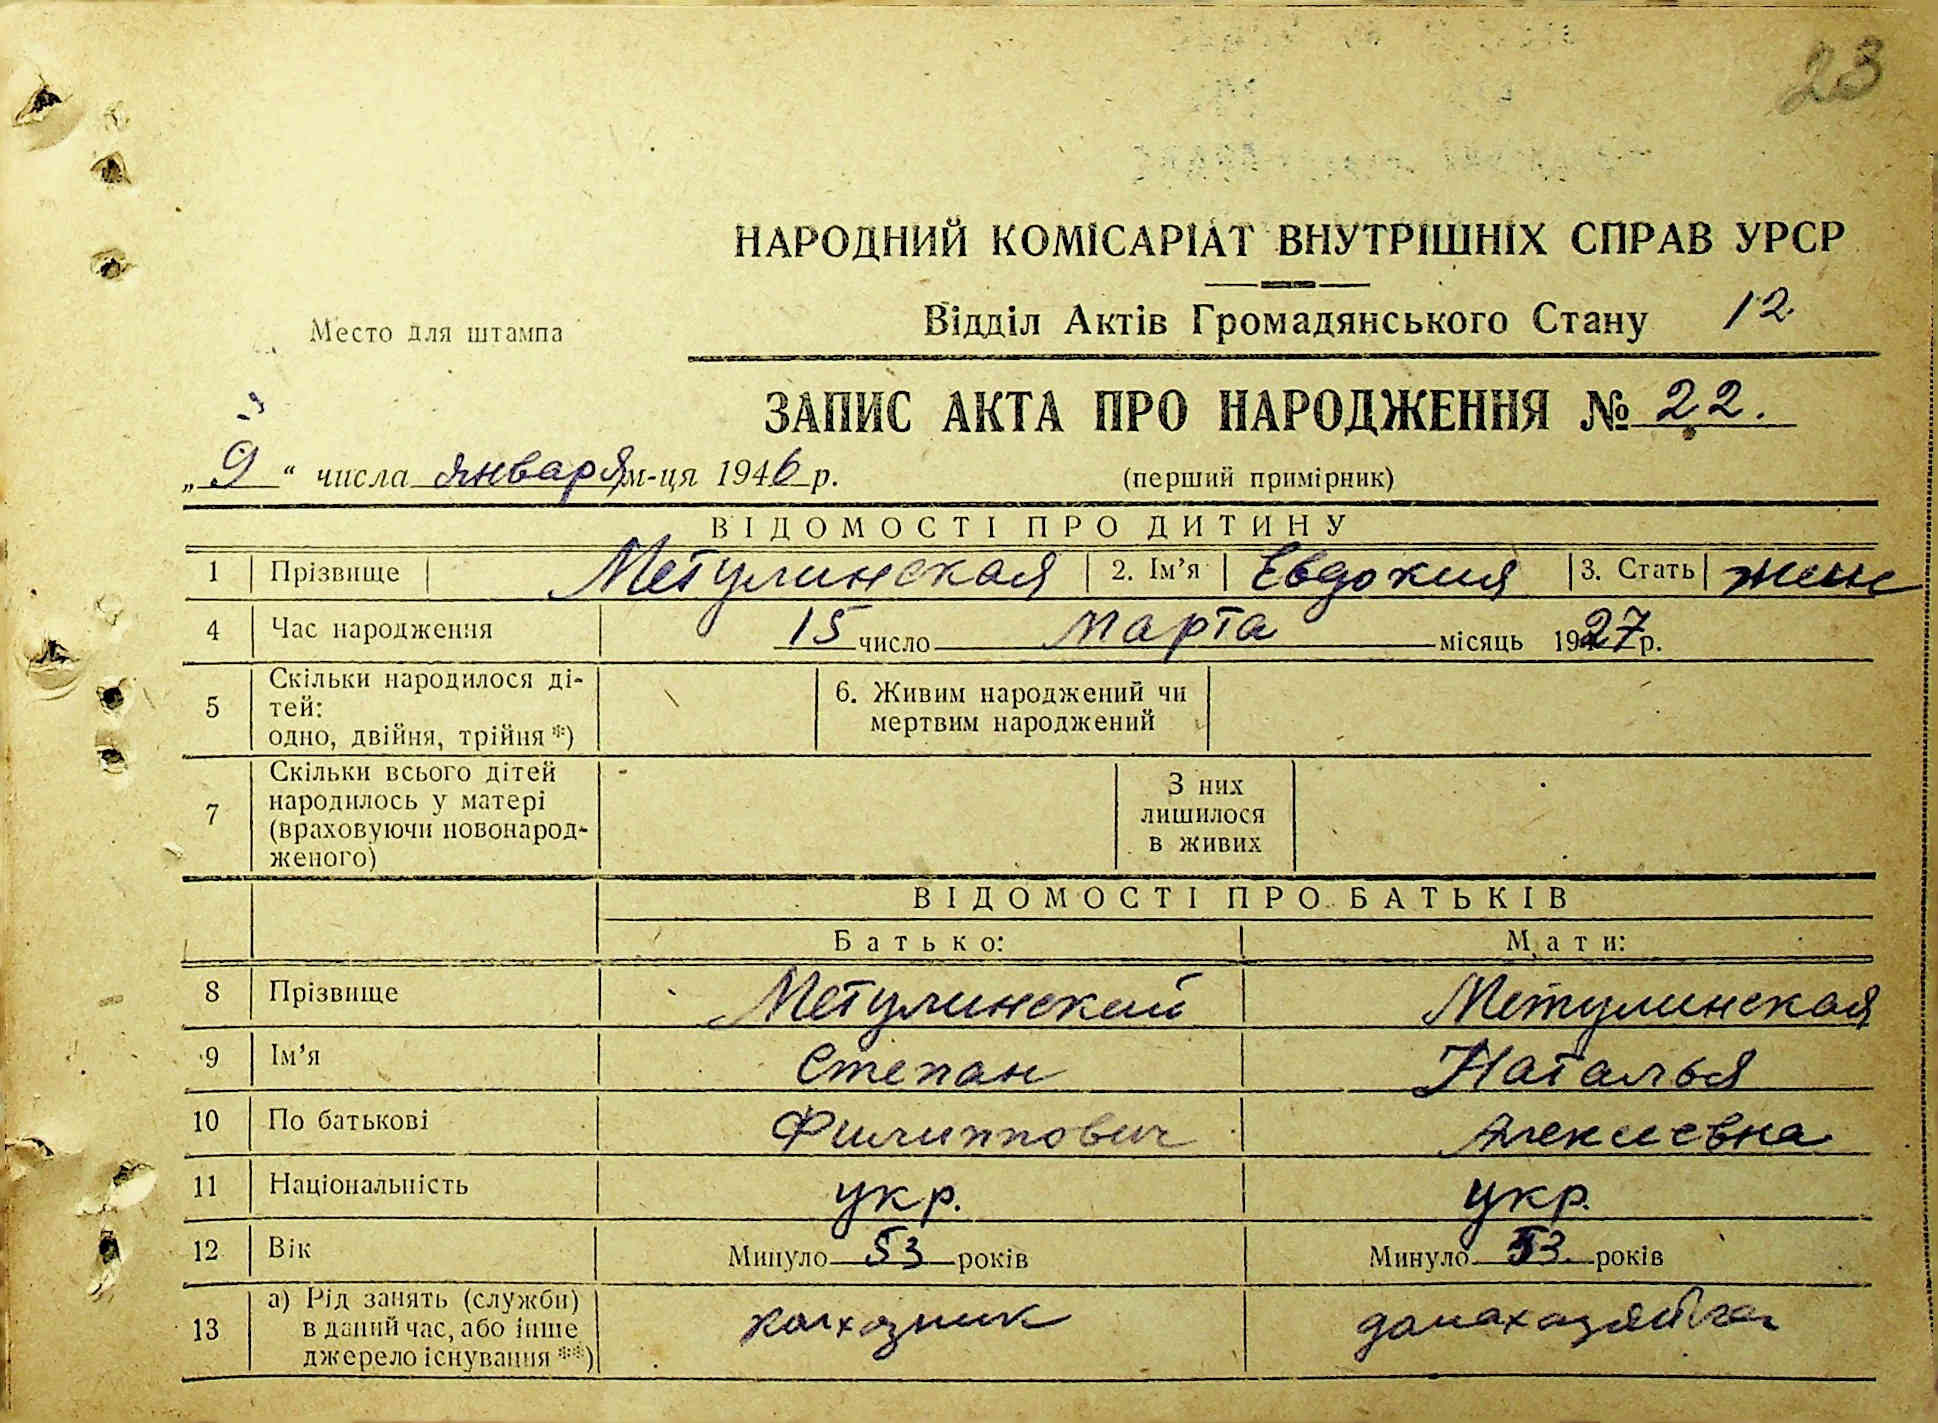 23
НАРОДНИЙ КОМІСАРІАТ ВНУТРІШНІХ СПРАВ УРСР
Место для штампа
Відділ Актів Громадянського Стану 12
ЗАПИС АКТА ПРО НАРОДЖЕННЯ № 22.
„ 9 “ числа января м-ця 1946 р. (перший примірник)
ВІДОМОСТІ ПРО ДИТИНУ
1 Прізвище Метулинская 2. Ім’я Евдокия 3. Стать женс
4 Час народження 15 число марта місяць 1927 р.
5 Скільки народилося ді-
тей:
одно, двійня, трійня *)
6. Живим народжений чи
мертвим народжений
7 Скільки всього дітей
народилось у матері
(враховуючи новонарод-
женого)
З них
лишилося
в живих
ВІДОМОСТІ ПРО БАТЬКІВ
Батько: Мати:
8 Прізвище Метулинский Метулинская
9 Ім’я Степан Наталья
10 По батькові Филиппович Алексеевна
11 Національність укр. укр.
12 Вік Минуло 53 років Минуло 53 років
13 а) Рід занять (служби)
в даний час, або інше
джерело існування **)
колхозник домахозяйка